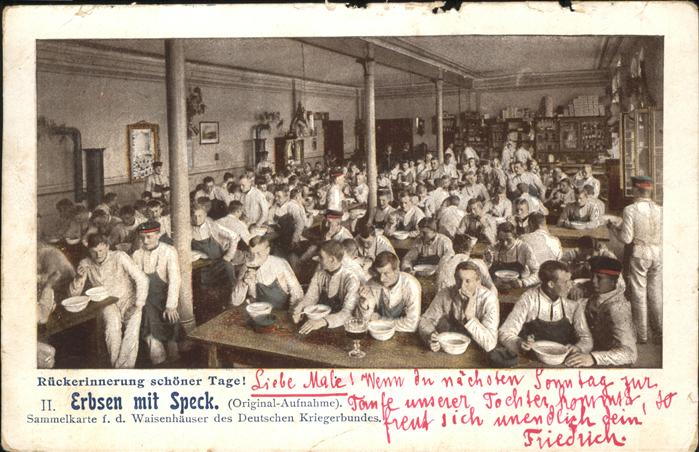 Rückerinnerung schöner Tage!
II. Erbsen mit Speck. (Original-Aufnahme).
Sammelkarte f. d. Waisenhäuser des Deutschen Kriegerbundes.
Liebe Male! Wenn du nächsten Sonntag zur
Taufe unserer Tochter kommst, so
freut sich unendlich dein
Friedrich.